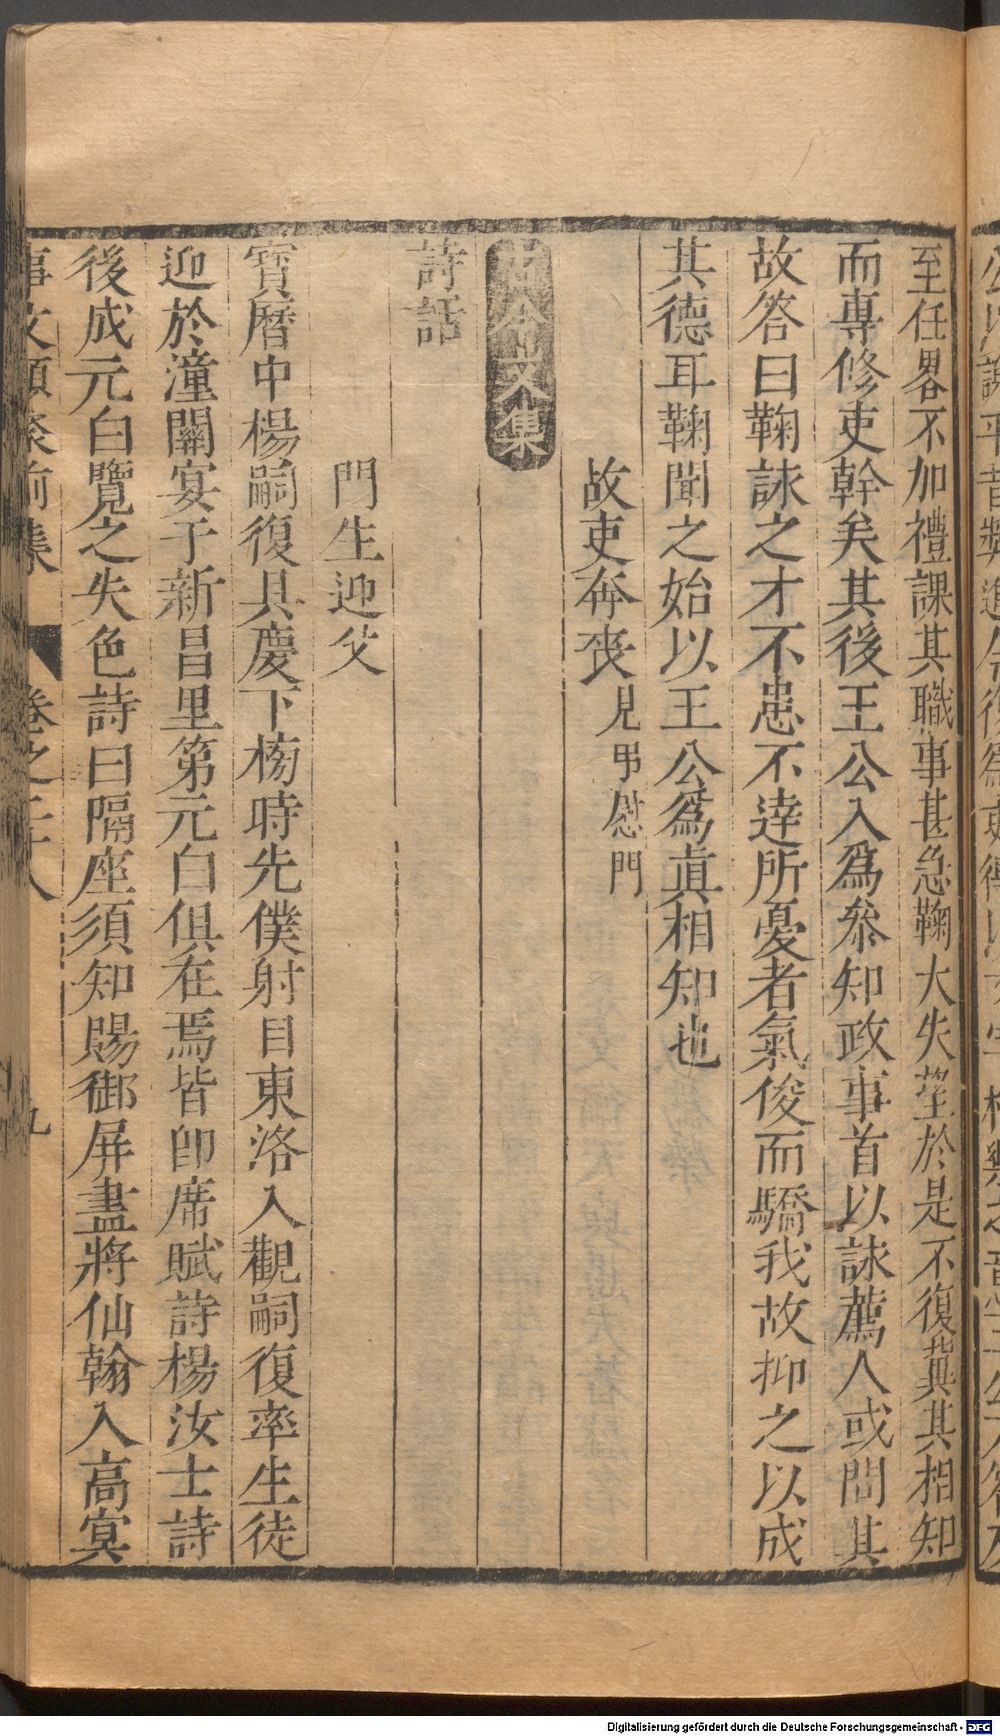 至任畧不加禮課其職事甚急鞠大失望於是不復冀其相知
而專修吏幹矣其後王公入為叅知政事首以詠薦人或問其
故答曰鞠詠之才不患不達所憂者氣俊而驕我故抑之以成
其德耳鞠聞之始以王公為真相知也
故吏奔喪見弔慰門
古今文集
詩話
門生迎父
寳曆中楊嗣復具慶下榜時先僕射自東洛入覲嗣復率生徒
迎於潼關宴于新昌里第元白俱在焉皆即席賦詩楊汝士詩
後成元白覽之失色詩曰隔座須知賜御屏盡將仙翰入高冥
事文類聚前集 卷之二十八 九
Digitalisierung gefördert durch die Deutsche Forschungsgemeinschaft - DFG